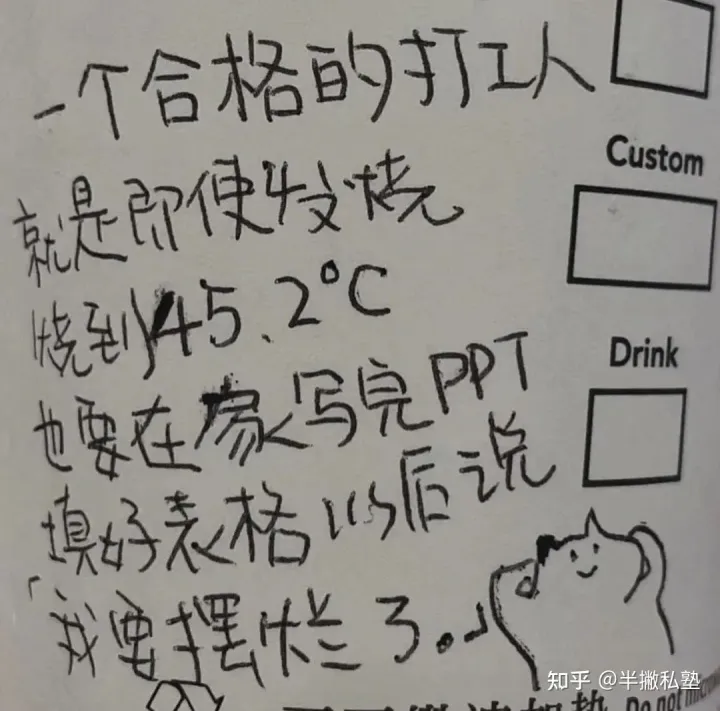 一个合格的打工人
Custom
就是即使发烧
烧到45.2°C
Drink
也要在家写完PPT
填好表格以后说
「我要摆烂了。」
知乎 @半撇私塾
Do not